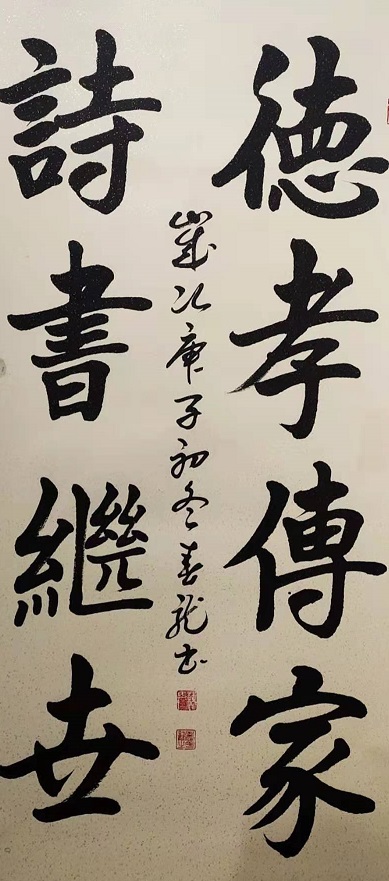 德孝傳家
詩書繼世
歲次庚子初冬春龍書